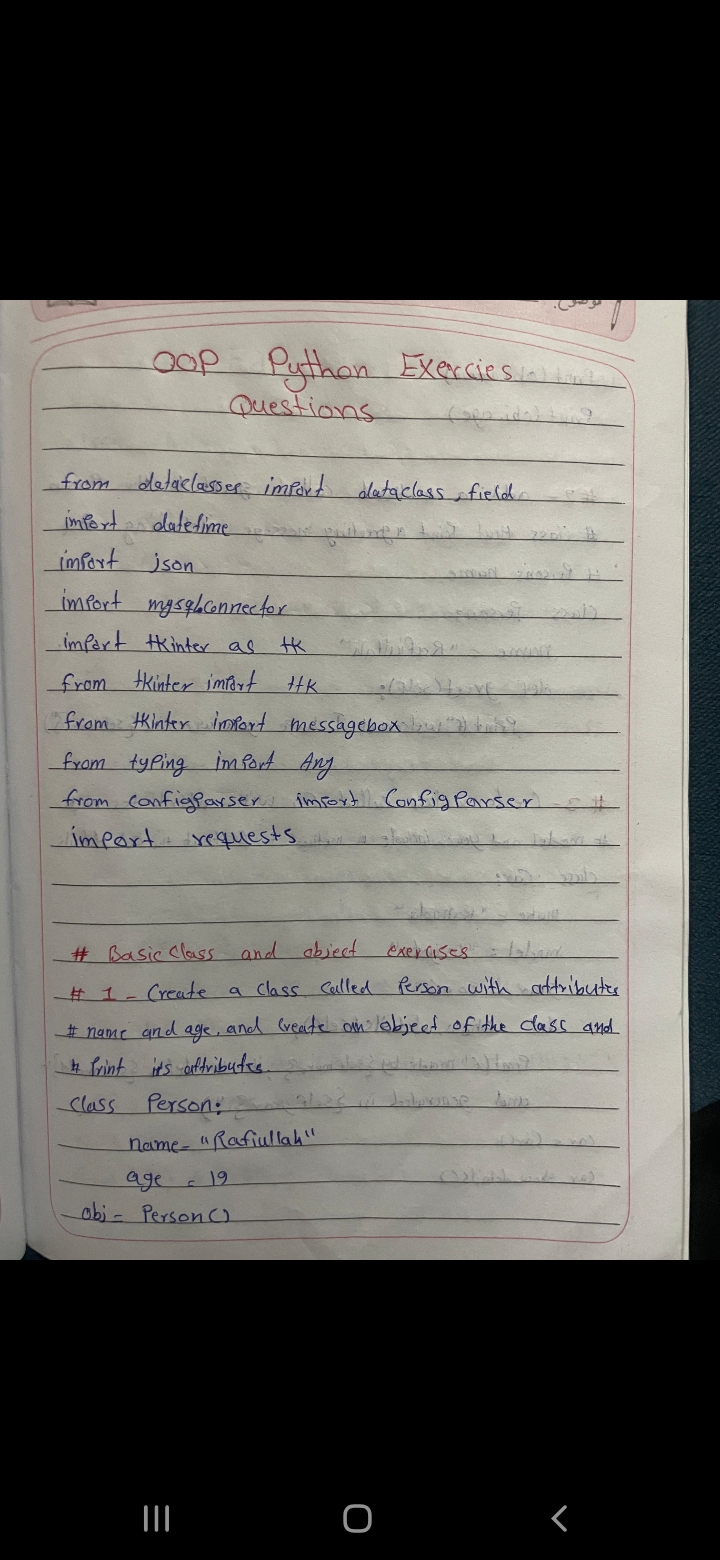 OOP Python Exercies
Questions
from dataclasses import dataclass, field
import datetime
import json
import mysql.connector
import tkinter as tk
from tkinter import ttk
from tkinter import messagebox
from typing import Any
from configParser import ConfigParser
import requests
# Basic Class and object exercises
# 1 - Create a class called Person with attributes
# name and age, and create an object of the class and
# Print its attributes.
class Person:
name = "Rafiullah"
age = 19
obj = Person()